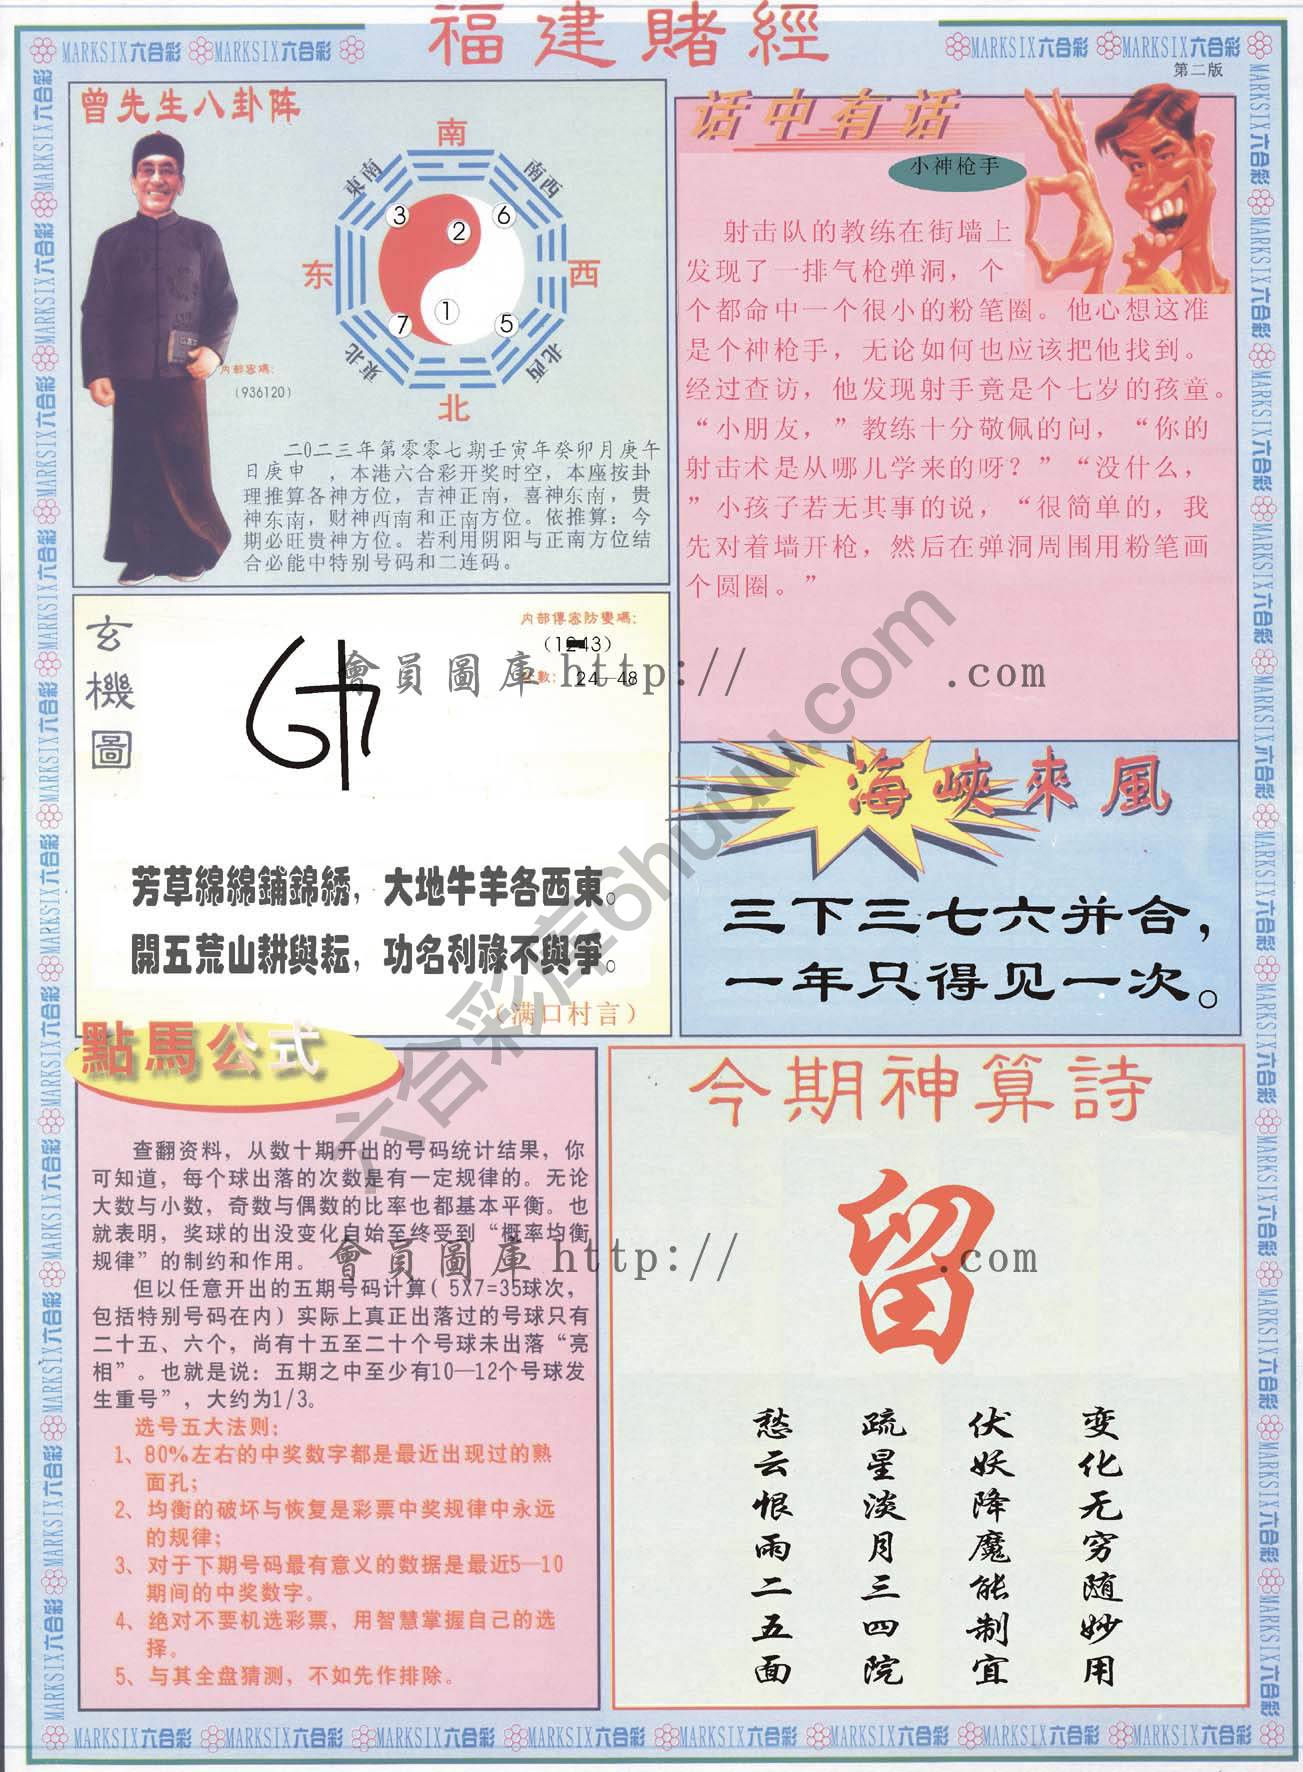 福建賭經
MARKSIX六合彩 MARKSIX六合彩
MARKSIX六合彩 MARKSIX六合彩
第二版
曾先生八卦阵
南
東南
南西
3
2
6
东
西
1
7
5
東北
北西
北
内部密碼:
(936120)
二0二三年第零零七期壬寅年癸卯月庚午
日庚申 ,本港六合彩开奖时空,本座按卦
理推算各神方位,吉神正南,喜神东南,贵
神东南,财神西南和正南方位。依推算:今
期必旺贵神方位。若利用阴阳与正南方位结
合必能中特别号码和二连码。
话中有话
小神枪手
射击队的教练在街墙上
发现了一排气枪弹洞,个
个都命中一个很小的粉笔圈。他心想这准
是个神枪手,无论如何也应该把他找到。
经过查访,他发现射手竟是个七岁的孩童。
“小朋友,”教练十分敬佩的问,“你的
射击术是从哪儿学来的呀?”“没什么,
”小孩子若无其事的说,“很简单的,我
先对着墙开枪,然后在弹洞周围用粉笔画
个圆圈。”
玄機圖
内部傳密防變碼:
數: 24—48
會員圖庫 http:// .com
芳草綿綿鋪錦綉,大地牛羊各西東。
開五荒山耕與耘,功名利祿不與爭。
(满口村言)
海峽來風
三下三七六并合,
一年只得见一次。
六合彩库6huuu.com
點馬公式
查翻资料,从数十期开出的号码统计结果,你
可知道,每个球出落的次数是有一定规律的。无论
大数与小数,奇数与偶数的比率也都基本平衡。也
就表明,奖球的出没变化自始至终受到“概率均衡
规律”的制约和作用。
但以任意开出的五期号码计算(5X7=35球次,
包括特别号码在内)实际上真正出落过的号球只有
二十五、六个,尚有十五至二十个号球未出落“亮
相”。也就是说:五期之中至少有10—12个号球发
生重号”,大约为1/3。
选号五大法则:
1、80%左右的中奖数字都是最近出现过的熟
面孔;
2、均衡的破坏与恢复是彩票中奖规律中永远
的规律;
3、对于下期号码最有意义的数据是最近5—10
期间的中奖数字。
4、绝对不要机选彩票,用智慧掌握自己的选
择。
5、与其全盘猜测,不如先作排除。
會員圖庫 http:// .com
今期神算詩
留
变化无穷随妙用
伏妖降魔能制宜
疏星淡月三四院
愁云恨雨二五面
MARKSIX六合彩 MARKSIX六合彩 MARKSIX六合彩 MARKSIX六合彩 MARKSIX六合彩 MARKSIX六合彩 MARKSIX六合彩 MARKSIX六合彩